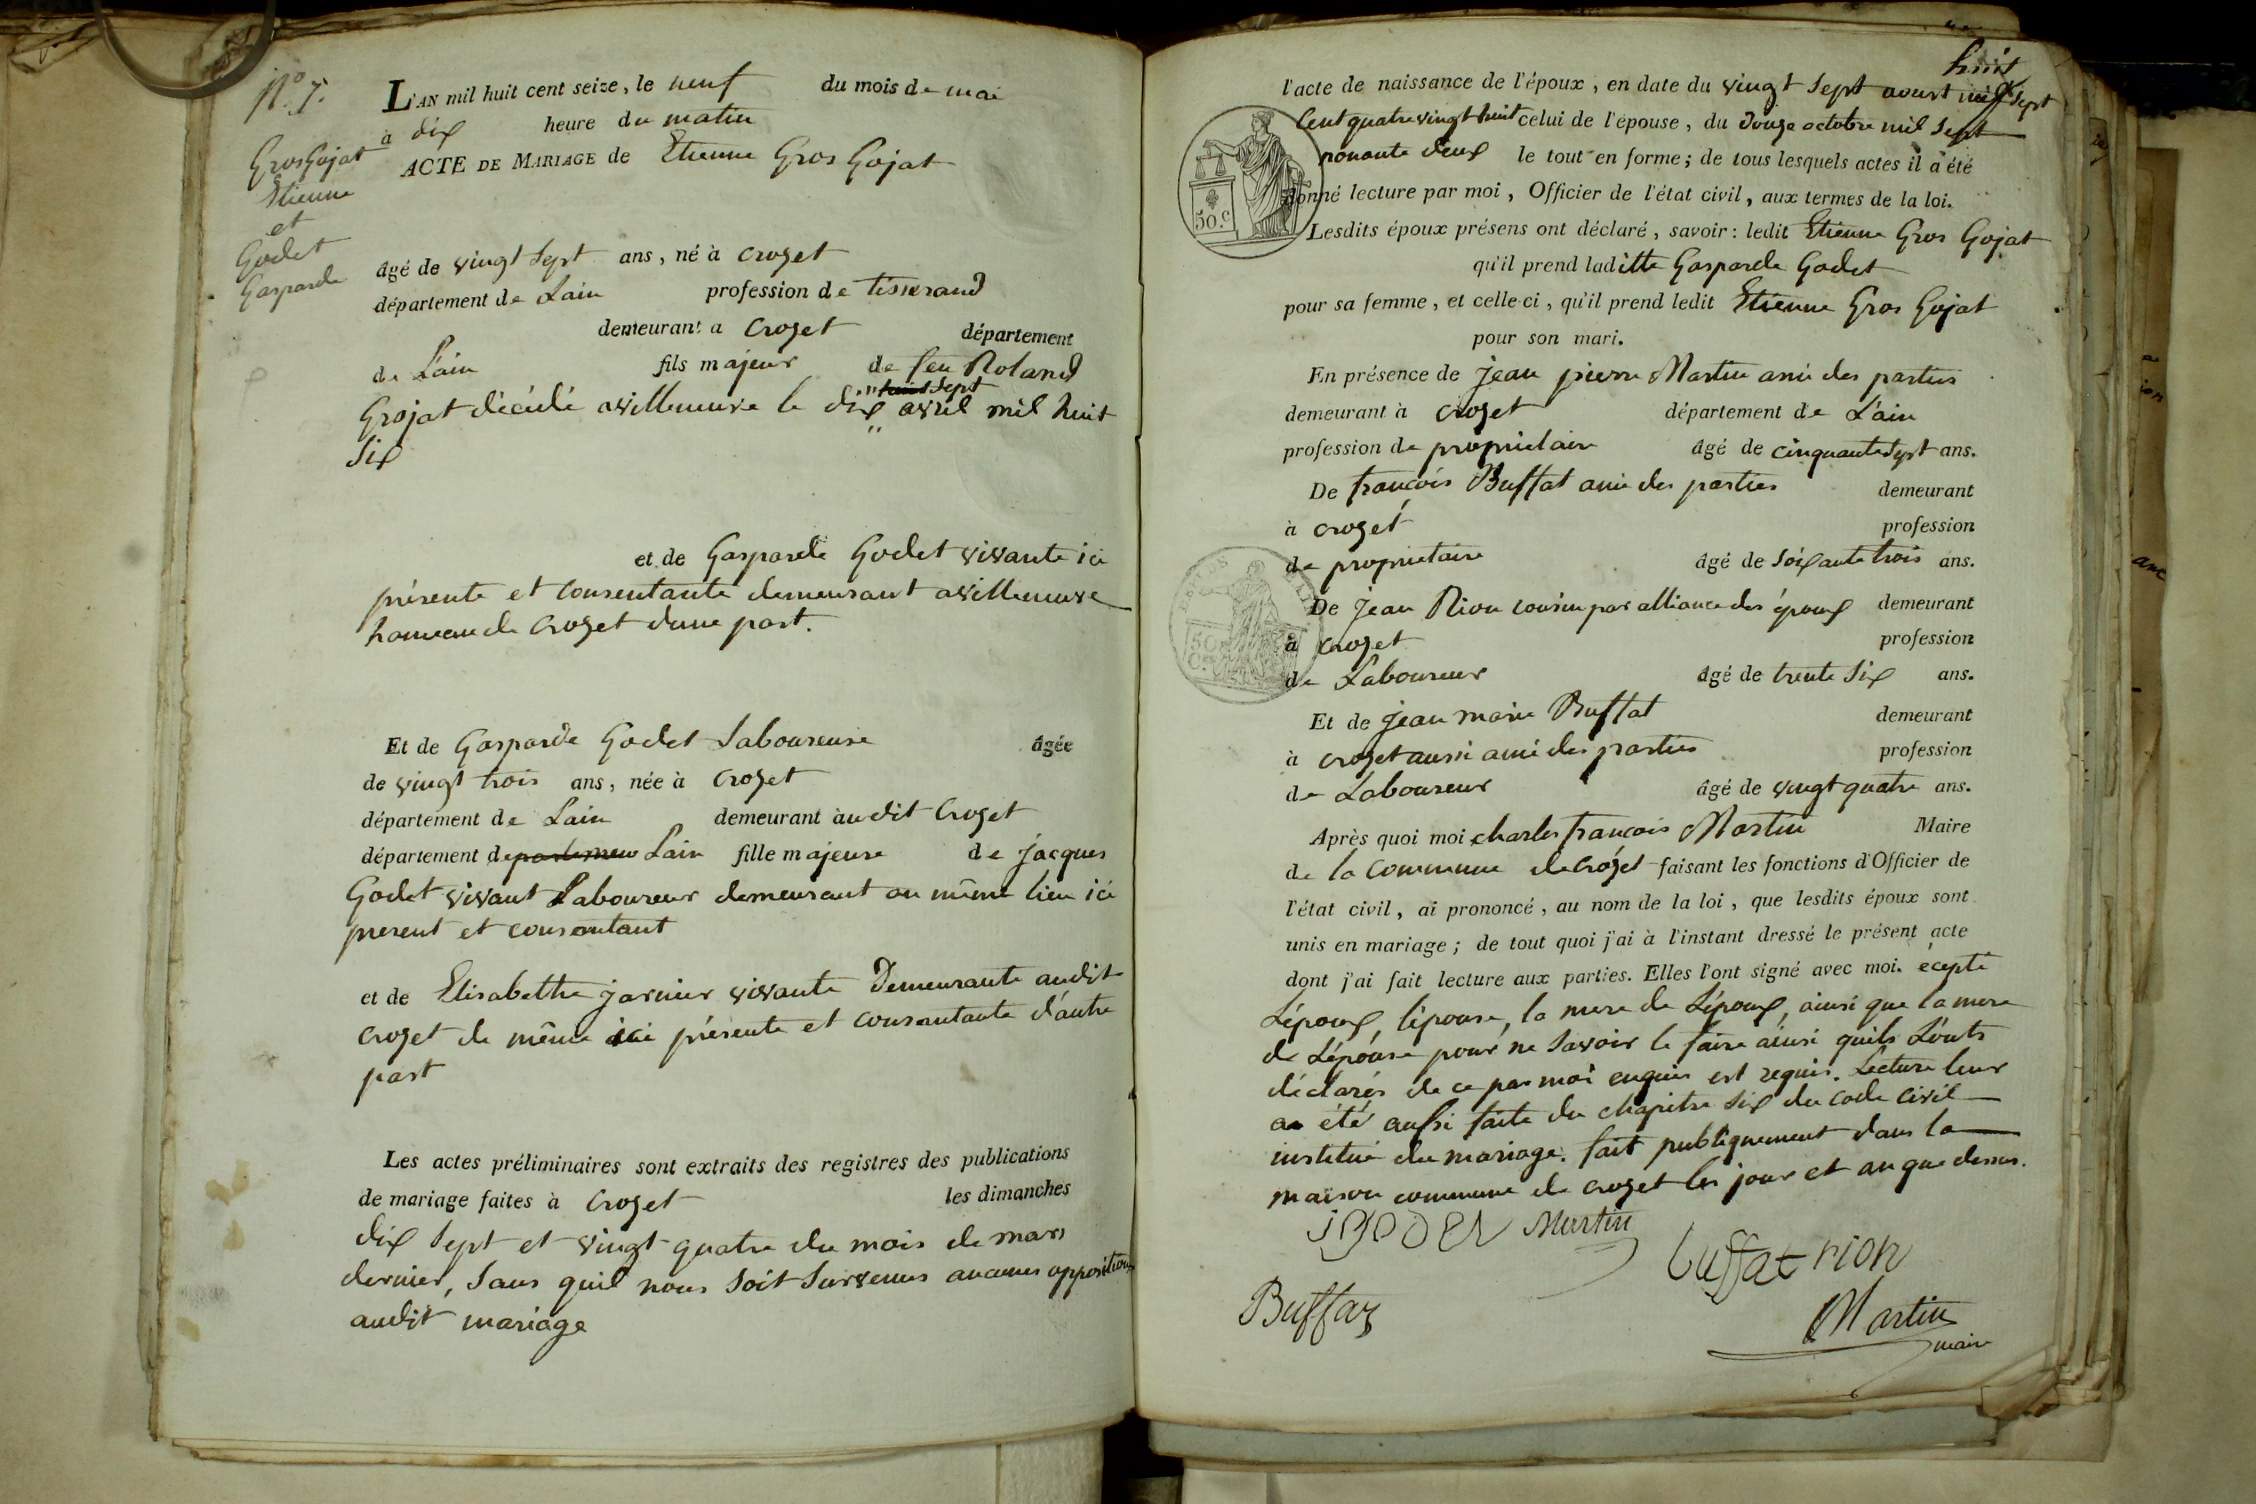 N.º 7.
Gros Gojat
Etienne
et
Godet
Gasparde
L'AN mil huit cent seize, le neuf du mois de mai
à dix heure du matin
ACTE DE MARIAGE de Etienne Gros Gojat
âgé de vingt sept ans, né à Crozet
département de Lain profession de tisserand
demeurant a Crozet département
de L'ain fils majeur de feu Roland
Grojat décédé avilleneuve le dix sept avril mil huit
Six
et de Gasparde Godet vivante ici
présente et consentante demeurant avilleneuve
hameau de Crozet dune part.
Et de Gasparde Godet Laboureuse âgée
de vingt trois ans, née à Crozet
département de Lain demeurant audit Crozet
département de Lain fille majeure de jacques
Godet vivant Laboureur demeurant au même lieu ici
present et consentant
et de Elisabethe jarnier vivante Demeurante audit
Crozet de même ici présente et consantante d'autre
part
Les actes préliminaires sont extraits des registres des publications
de mariage faites à Crozet les dimanches
dix sept et vingt quatre du mois de mars
dernier, Sans quil nous soit survenus aucunes oppositions
audit mariage
huit
l'acte de naissance de l'époux, en date du vingt sept aoust mil sept
Cent quatre vingt huit celui de l'épouse, du Douze octobre mil sept
nonante deux le tout en forme; de tous lesquels actes il a été
donné lecture par moi, Officier de l'état civil, aux termes de la loi.
50.c
Lesdits époux présens ont déclaré, savoir: ledit Etienne Gros Gojat
qu'il prend laditte Gasparde Godet
pour sa femme, et celle-ci, qu'il prend ledit Etienne Gros Gojat
pour son mari.
En présence de jean pierre Martin ami des parties
demeurant à Crozet département de L'ain
profession de propriétaire âgé de cinquante sept ans.
De françois Buffat ami des parties demeurant
à Crozet profession
de propriétaire âgé de soixante trois ans.
50
C.
De jean Rion cousin par alliance des époux demeurant
à Crozet profession
de Laboureur âgé de trente Six ans.
Et de jean marie Buffat demeurant
à Crozet aussi ami des parties profession
de Laboureur âgé de vingt quatre ans.
Après quoi moi charles françois Martin Maire
de la Commune de Crozet faisant les fonctions d'Officier de
l'état civil, ai prononcé, au nom de la loi, que lesdits époux sont
unis en mariage; de tout quoi j'ai à l'instant dressé le présent acte
dont j'ai fait lecture aux parties. Elles l'ont signé avec moi. écepté
Lépoux, lépouse, la mere de Lépoux, ainsi que la mere
de Lépouse pour ne savoir le faire ainsi quils L'onts
déclarés de ce par moi enquis est requis. Lecture leur
a été aussi faite du chapitre six du code civil
institué du mariage. fait publiquement dans la
maison commune de Crozet les jour et an que dessus.
Martin
buffat rion
Buffat
Martin
maire